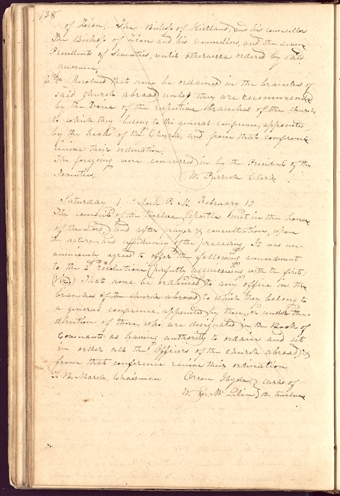 138
of Zion, The Bishop of Kirtland and his counsellors
The Bishop of Zion and his Counsellors, and the seven
Presidents of Seventies, until otherwise ordered by said
Resolved that none be ordained in the branches of
said church abroad unless they are recommended
by the voice of the respective branches of the church
to which they belong to the general conference, appointed
by the heads of the Church, and from that conference
receive their ordination.
The foregoing were concurred in by the Presidents of the
Seventies.
Saturday 1 o'clock P. M. February 12
The council of the twelve Apostles met in the house
of the Lord and after prayer & consultation, upon
the nature and of the preceding it was un-
animously agreed to offer the following amendment
to the 2d resolution (perfectly with the first)
(viz) That none be ordained to any office in the
branches of the church abroad to which they belong to
a general conference, appointed by those, or under the
direction of those, who are designated in the Book of
Covenants as having authority to ordain and set
in order all the officers of the church abroad, &
from that conference receive their ordination
T. B. Marsh, Chairman Orson Hyde Clerks of
W. E. McLelin the twelve